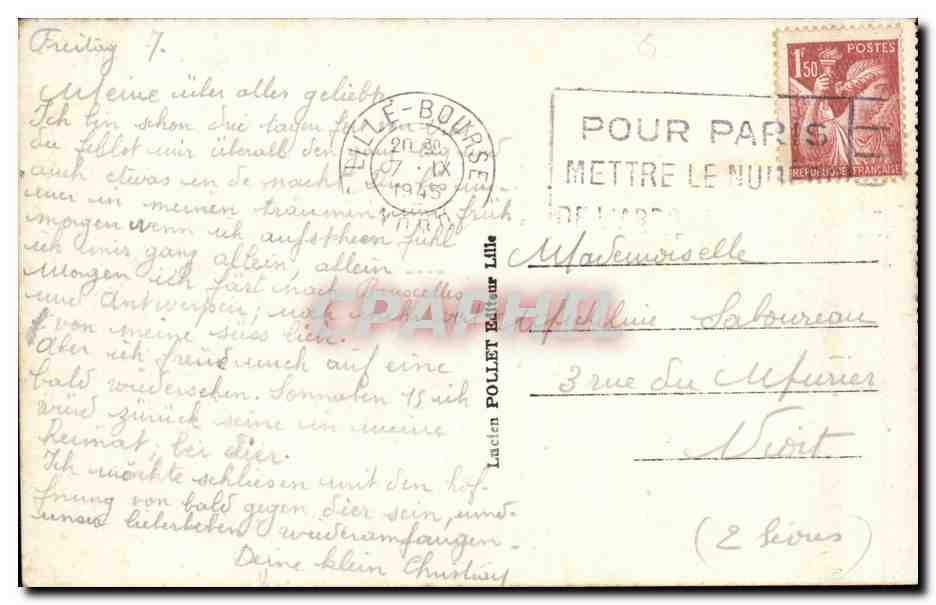 Freitag 7.
Meine über alles geliebte
Ich bin schon drei tagen
du fehlst mir überall den
auch etwas in de nacht
mer in meinen träumen, und früh
morgen wenn ich aufstheen fühl
ich mir ganz allein, allein ....
Morgen ich fart nach Bruxelles
und Antwerpen; noch
von meine süss lien.
Aber ich freud much auf eine
bald wiedersehen. Sonnaben 15 ich
würd zürück seine in meine
heimat, bei dier.
Ich möchte schliesen mit den hof-
fnung von bald gegen dier sein, und
unser lieberleben wiederamfangen.
Deine klein Christian
LILLE-BOURSE
20 30
7 · IX
1945
NORD
POUR PARIS
METTRE LE NUM
DE L'ARR
1F50
POSTES
REPUBLIQUE FRANÇAISE
Lucien POLLET Editeur Lille
CPAPHIL
Mademoiselle
Saboureau
3 rue du Mûrier
Niort
(2 Sèvres)